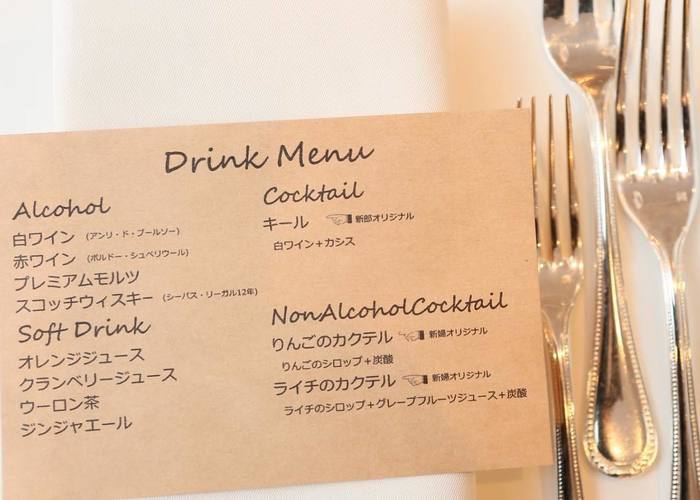 Drink Menu
Alcohol
白ワイン (アンリ・ド・ブールソー)
赤ワイン (ボルドー・シュペリウール)
プレミアムモルツ
スコッチウィスキー (シーバス・リーガル12年)
Soft Drink
オレンジジュース
クランベリージュース
ウーロン茶
ジンジャエール
Cocktail
キール 新郎オリジナル
白ワイン+カシス
NonAlcoholCocktail
りんごのカクテル 新婦オリジナル
りんごのシロップ+炭酸
ライチのカクテル 新婦オリジナル
ライチのシロップ+グレープフルーツジュース+炭酸